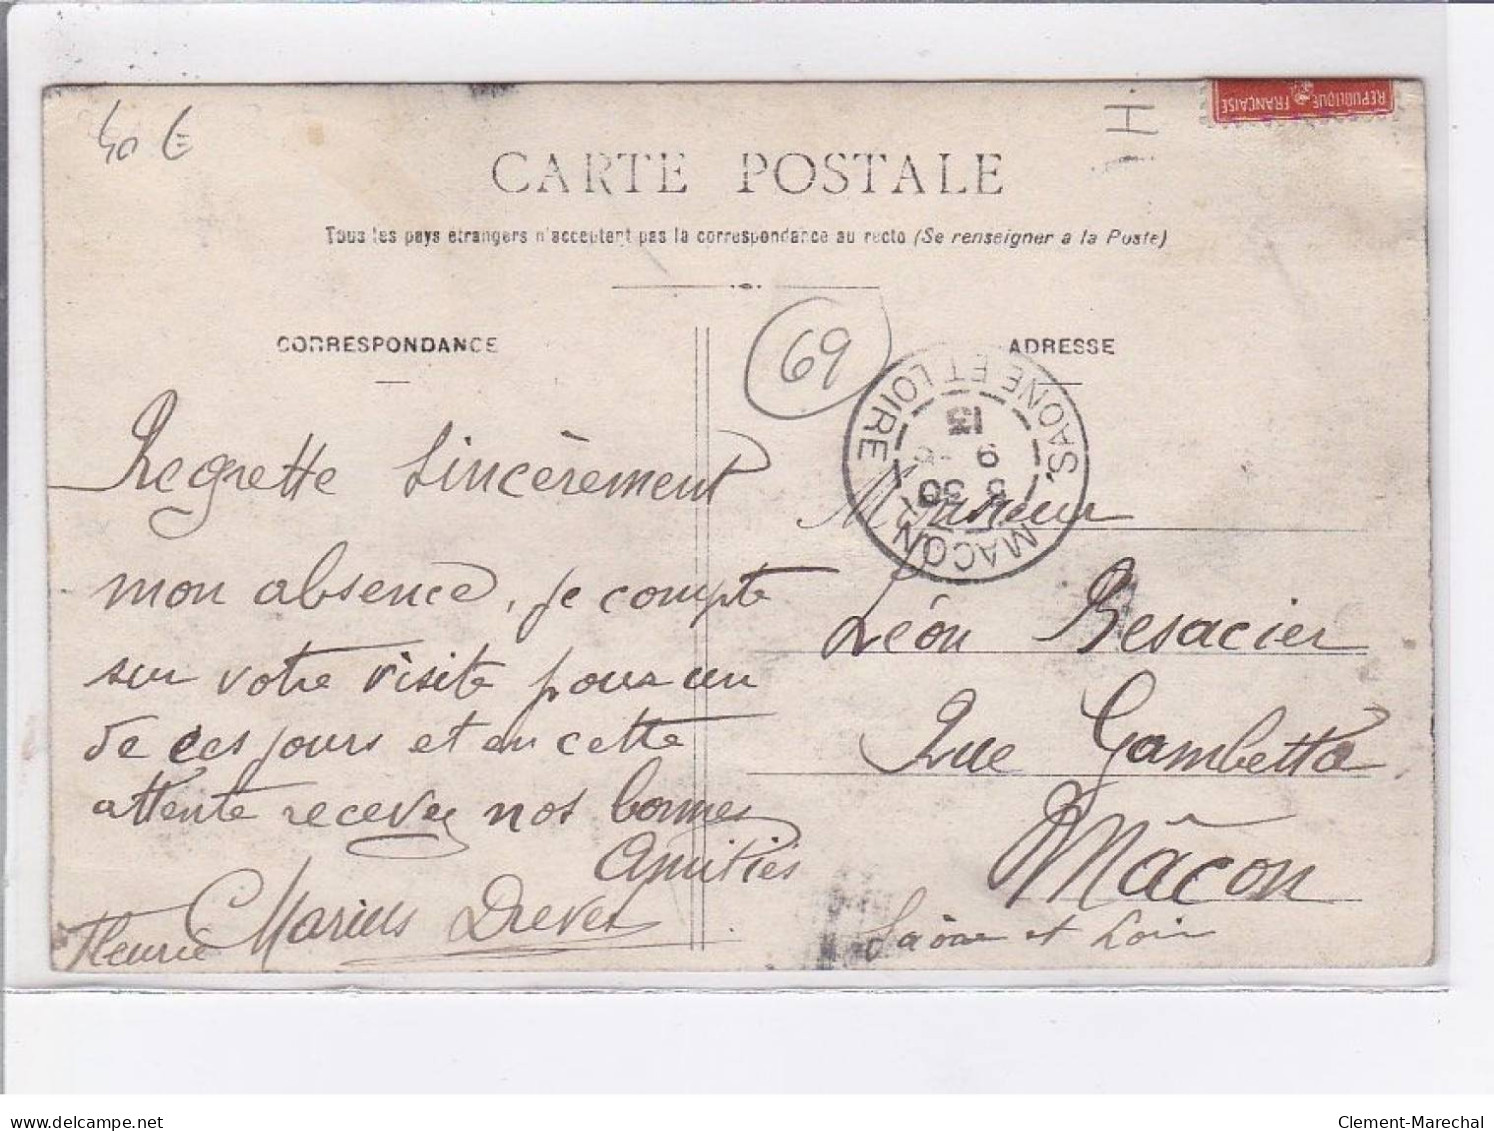 40 €
H
REPUBLIQUE FRANÇAISE
CARTE POSTALE
Tous les pays étrangers n'acceptant pas la correspondance au recto (Se renseigner à la Poste)
69
CORRESPONDANCE
ADRESSE
MACON SAONE ET LOIRE
5 30
9
13
Regrette sincèrement
mon absence, je compte
sur votre visite pour un
de ces jours et en cette
attente recevez nos bonnes
Amitiés
Marius Drevet
Fleurie
Monsieur
Léon Besacier
Rue Gambetta
Mâcon
Saône et Loire
delcampe.net
Clement-Marechal